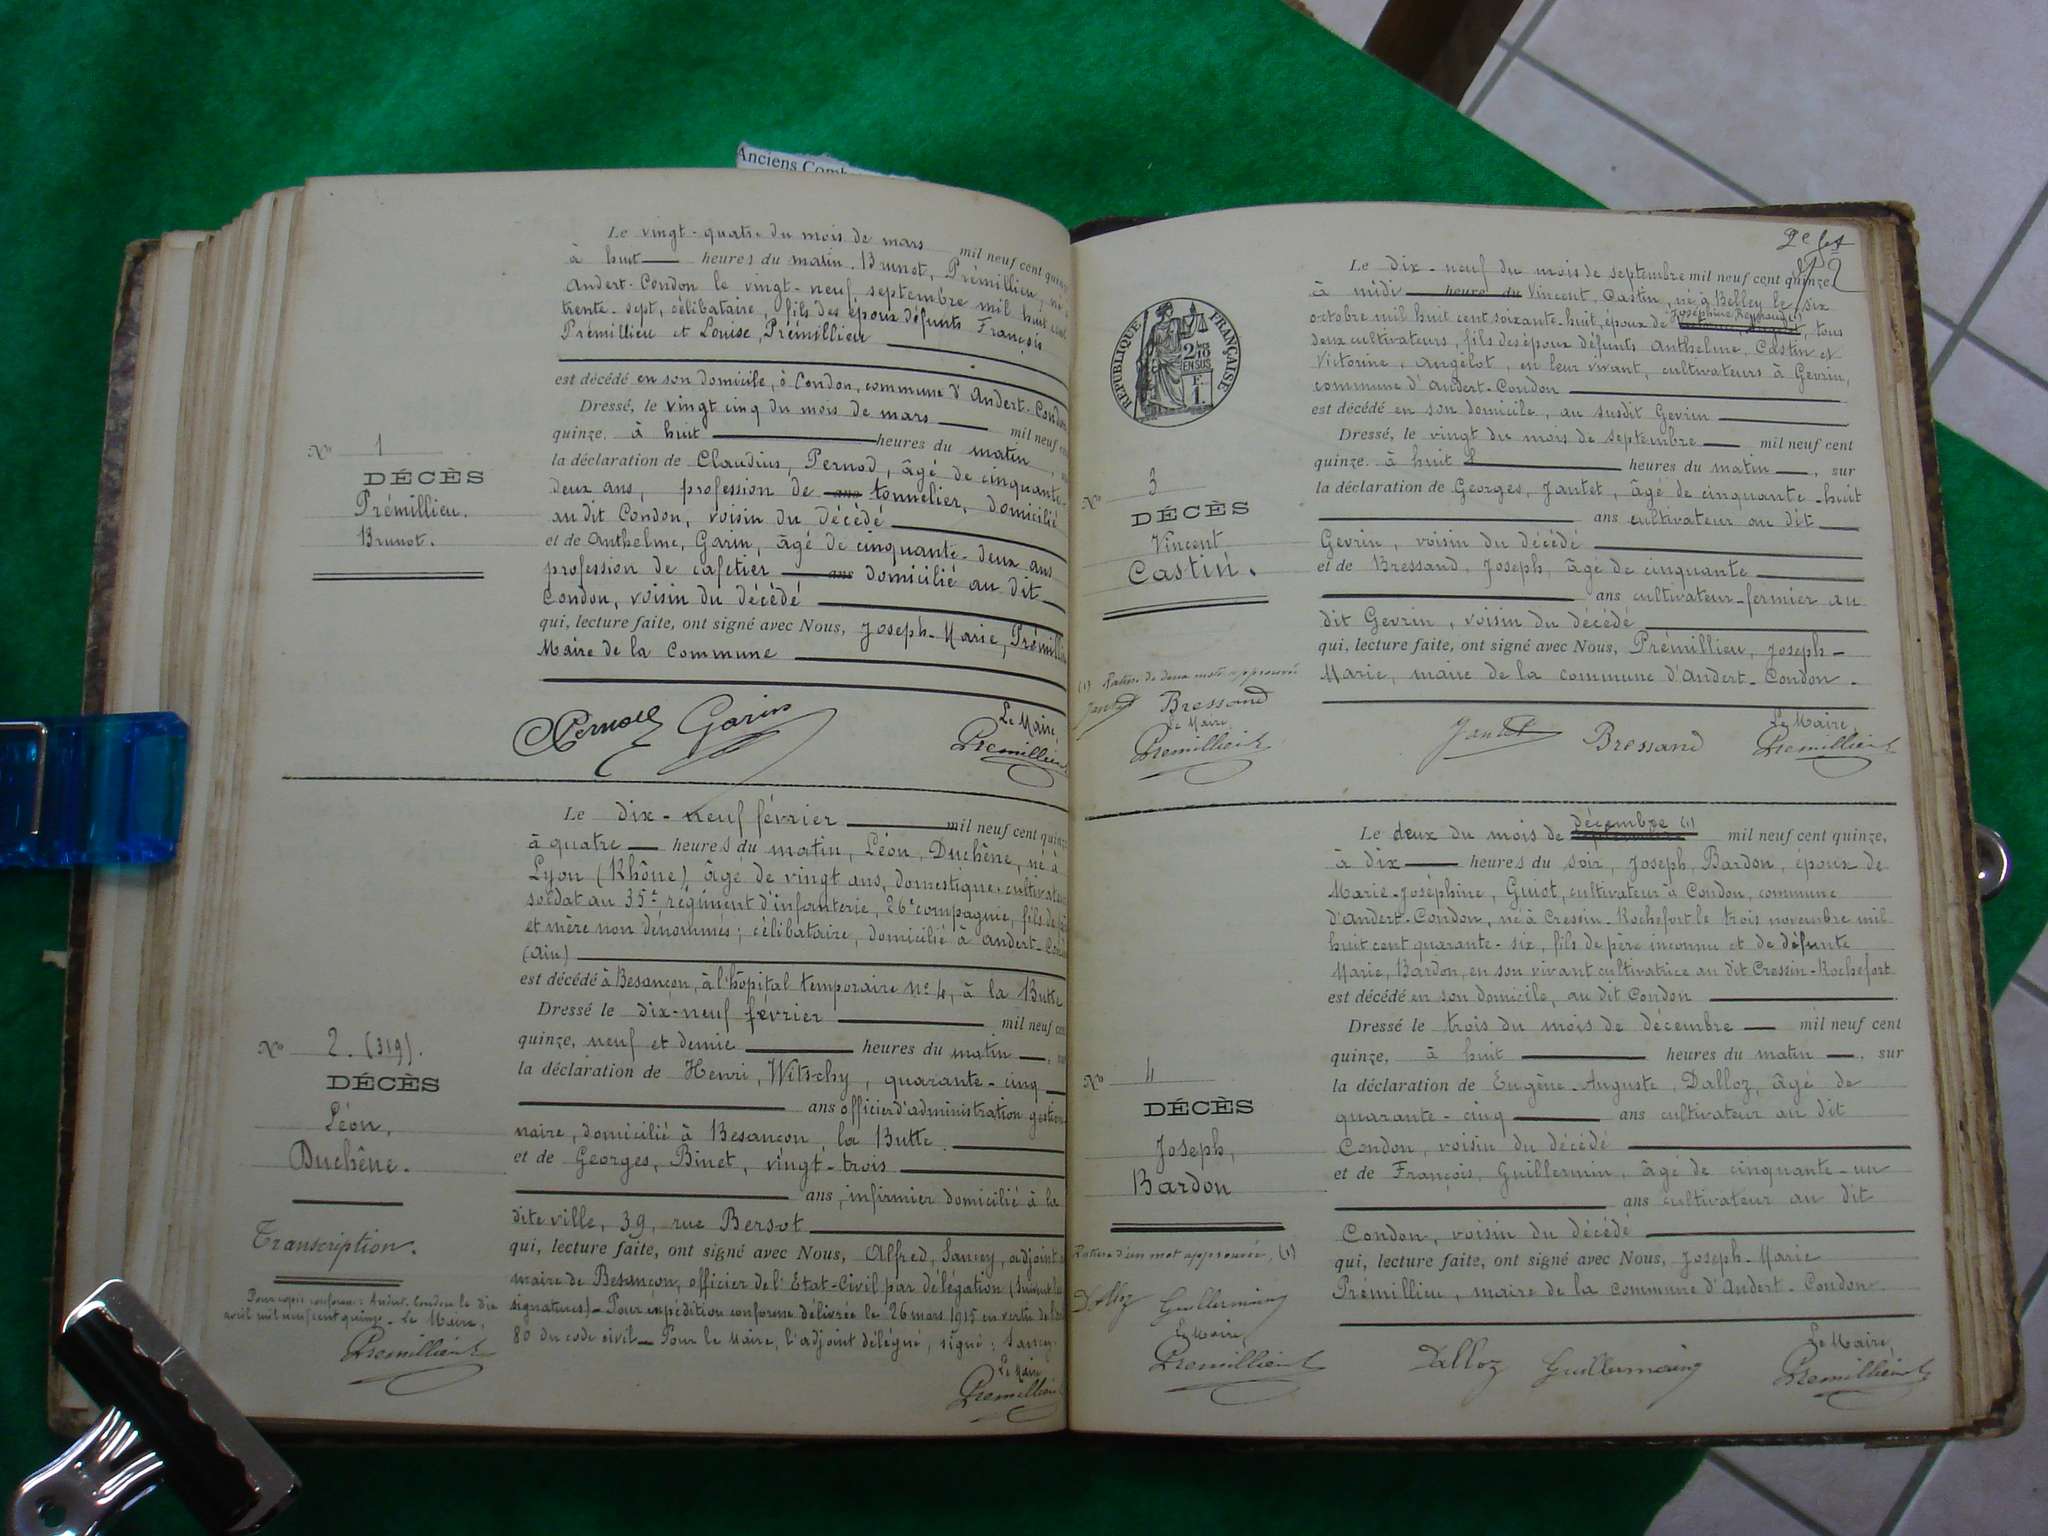 Anciens Comb
Le vingt-quatre du mois de mars mil neuf cent quinze
à huit heures du matin. Brunot, Prémillieu, né à
Andert-Condon le vingt-neuf septembre mil huit cent
trente-sept, célibataire, fils des époux défunts François
Prémillieu et Louise Prémillieu
est décédé en son domicile, à Condon, commune d'Andert-Condon
Dressé, le vingt cinq du mois de mars mil neuf cent
quinze. à huit heures du matin
la déclaration de Claudius, Pernod, âgé de cinquante-
deux ans, profession de ans tonnelier, domicilié
au dit Condon, voisin du décédé
et de Anthelme, Garin, âgé de cinquante-deux ans
profession de cafetier ans domicilié au dit
Condon, voisin du décédé
qui, lecture faite, ont signé avec Nous, Joseph-Marie, Prémillieu
Maire de la Commune
No 1
DÉCÈS
Prémillieu.
Brunot.
Pernod Garin
Le Maire,
Premillieu
Le dix-neuf février mil neuf cent quinze
à quatre heures du matin, Léon, Duchêne, né à
Lyon (Rhône) âgé de vingt ans, domestique-cultivateur
soldat au 35e régiment d'infanterie, 26e compagnie, fils de père
et mère non dénommés; célibataire, domicilié à Andert-Condon
(Ain)
est décédé à Besançon, à l'hôpital temporaire No 4, à la Butte
Dressé le dix-neuf février mil neuf cent
quinze, neuf et demie heures du matin, sur
la déclaration de Henri, Witschy, quarante-cinq
ans officier d'administration gestion-
naire, domicilié à Besançon, la Butte.
et de Georges, Binet, vingt-trois
ans, infirmier domicilié à la
dite ville, 39, rue Bersot
qui, lecture faite, ont signé avec Nous, Alfred, Sancey, adjoint
maire de Besançon, officier de l'Etat-Civil par délégation (suivent les
signatures) - Pour expédition conforme délivrée le 26 mars 1915 en vertu de l'art
80 du code civil - Pour le Maire, l'adjoint délégué, signé: Sancey.
Le Maire
Premillieu
No 2. (319).
DÉCÈS
Léon,
Duchêne.
Transcription.
Pour copie conforme: Andert-Condon le dix
avril mil neuf cent quinze - Le Maire,
Premillieu
2e
RÉPUBLIQUE FRANÇAISE
2/10
EN SUS
F.
1.
Le dix-neuf du mois de septembre mil neuf cent quinze
à midi heure du Vincent, Castin, né à Belley le six
octobre mil huit cent soixante-huit, époux de Joséphine Reynaud (1), tous
deux cultivateurs, fils des époux défunts Anthelme, Castin et
Victorine, Angelot, en leur vivant, cultivateurs à Gevrin,
commune d'Andert-Condon
est décédé en son domicile, au susdit Gevrin
Dressé, le vingt du mois de septembre mil neuf cent
quinze. à huit heures du matin, sur
la déclaration de Georges, Jantet, âgé de cinquante-huit
ans cultivateur au dit
Gevrin, voisin du décédé
et de Bressand, Joseph, âgé de cinquante
ans cultivateur-fermier au
dit Gevrin, voisin du décédé
qui, lecture faite, ont signé avec Nous, Prémillieu, Joseph-
Marie, maire de la commune d'Andert-Condon.
No 3
DÉCÈS
Vincent
Castin.
(1) Rature de deux mots approuvée
Jantet Bressand
Le Maire,
Premillieu
Jantet Bressand
Le Maire,
Premillieu
Le deux du mois de décembre (1) mil neuf cent quinze,
à dix heures du soir, Joseph, Bardon, époux de
Marie-Joséphine, Guiot, cultivateur à Condon, commune
d'Andert-Condon, né à Cressin-Rochefort le trois novembre mil
huit cent quarante-six, fils de père inconnu et de défunte
Marie, Bardon, en son vivant cultivatrice au dit Cressin-Rochefort
est décédé en son domicile, au dit Condon
Dressé le trois du mois de décembre mil neuf cent
quinze, à huit heures du matin, sur
la déclaration de Eugène-Auguste, Dalloz, âgé de
quarante-cinq ans cultivateur au dit
Condon, voisin du décédé
et de François, Guillermin, âgé de cinquante-un
ans cultivateur au dit
Condon, voisin du décédé
qui, lecture faite, ont signé avec Nous, Joseph-Marie
Prémillieu, maire de la commune d'Andert-Condon.
No 4
DÉCÈS
Joseph,
Bardon
Rature d'un mot approuvée, (1)
Dalloz Guillermin
Le Maire,
Premillieu
Dalloz Guillermin
Le Maire,
Premillieu